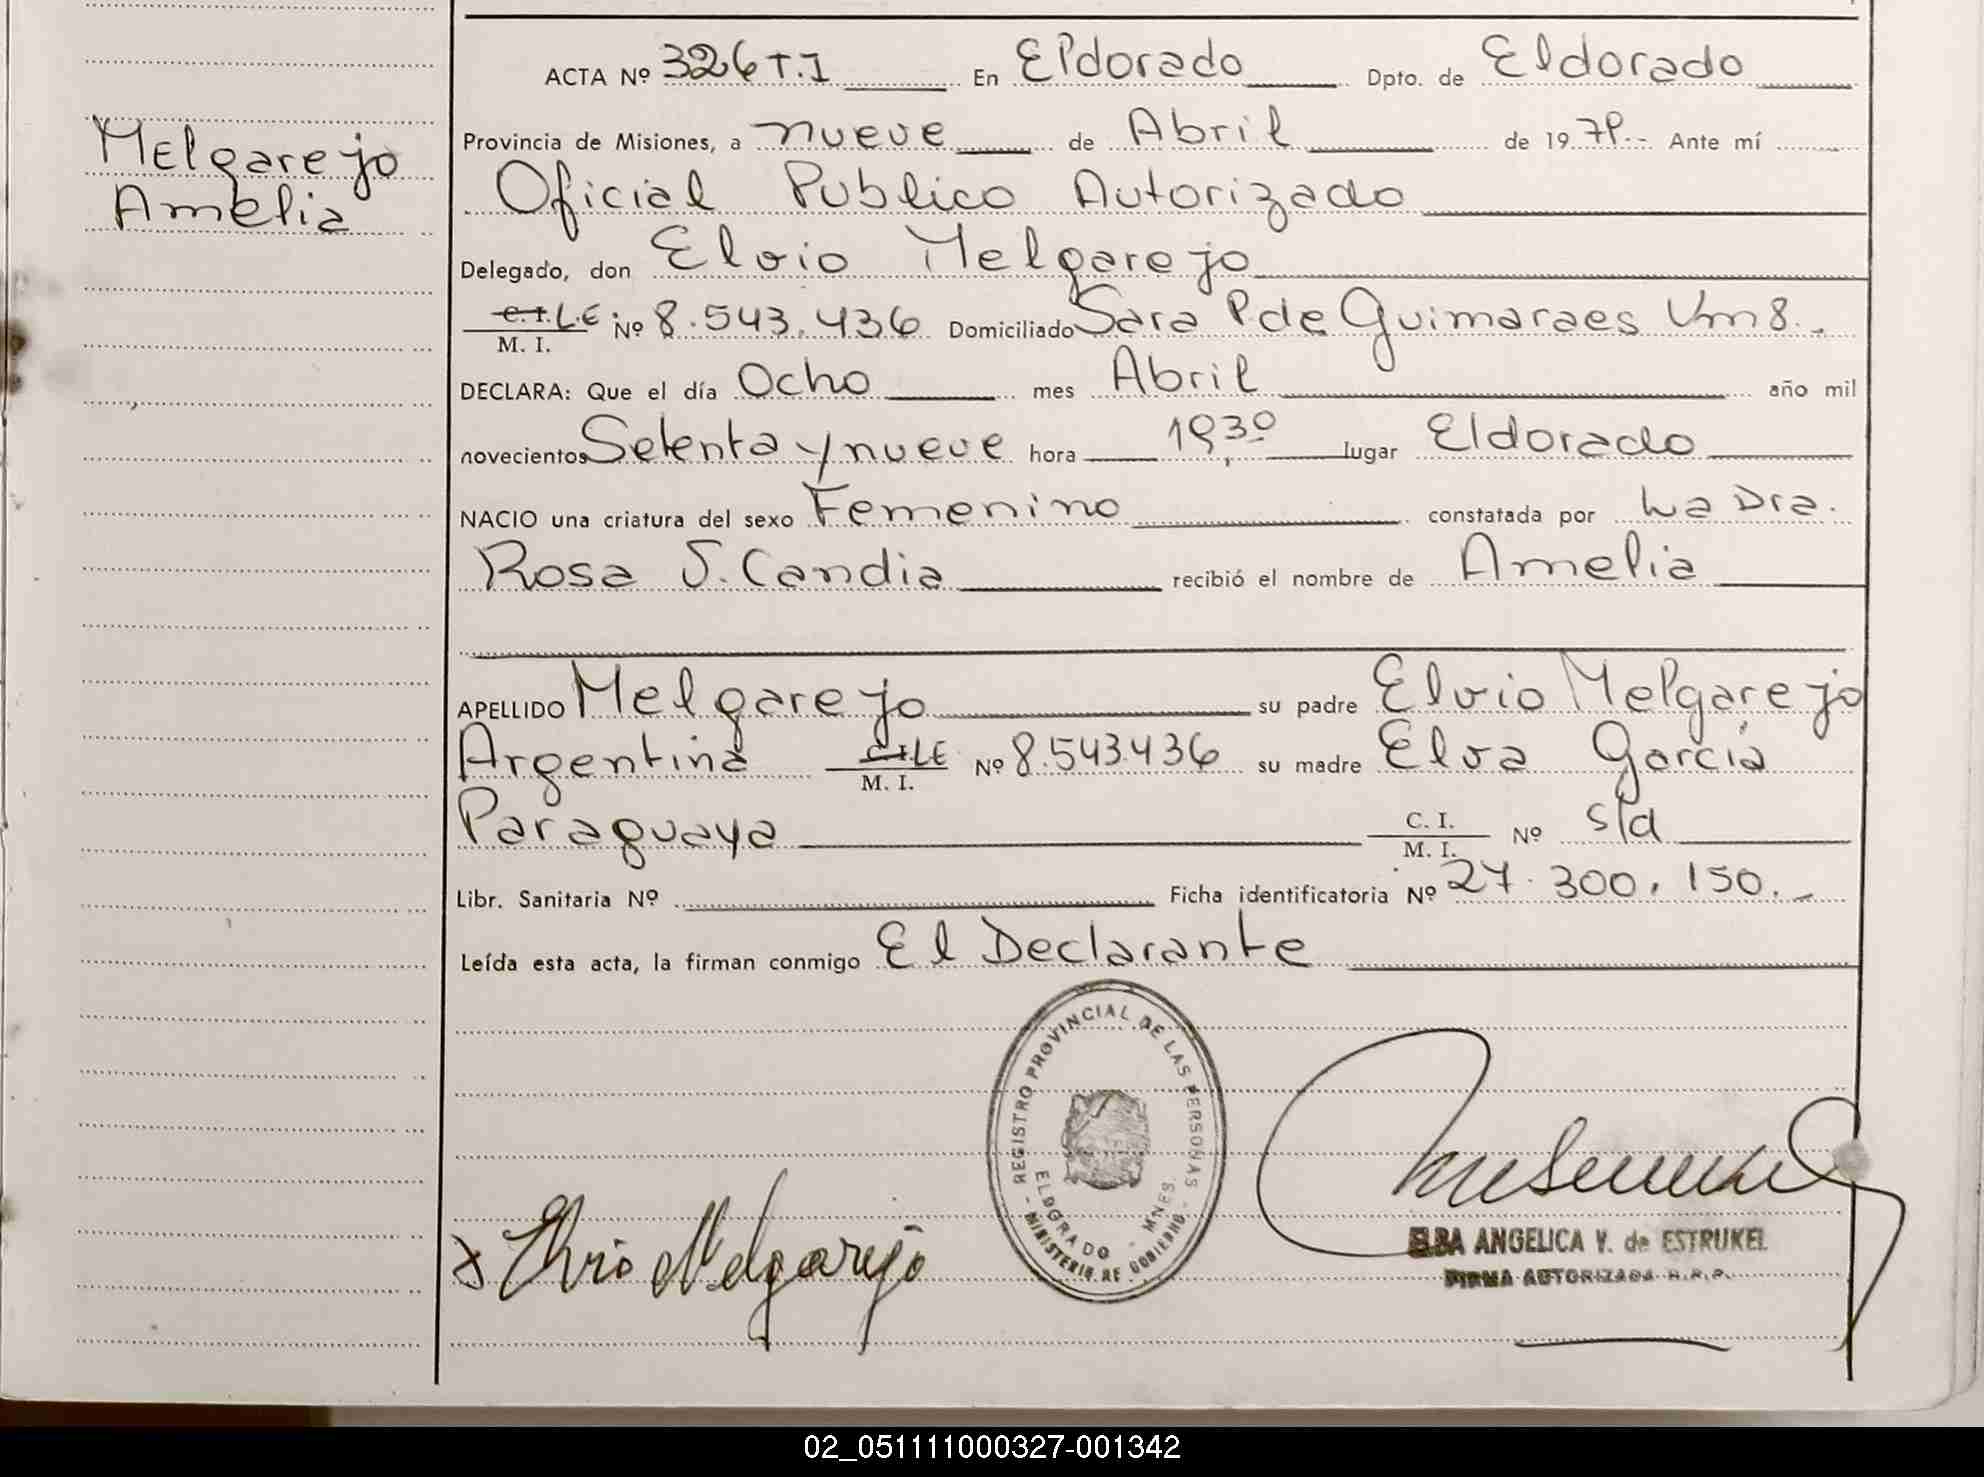 ACTA Nº 326 T.I En Eldorado Dpto. de Eldorado
Melgarejo
Amelia
Provincia de Misiones, a nueve de Abril de 1979.- Ante mí
Oficial Publico Autorizado
Delegado, don Elvio Melgarejo
C.I. L.E Nº 8.543.436 Domiciliado Sara P de Guimaraes Km 8.
M. I.
DECLARA: Que el día Ocho mes Abril año mil
novecientos Setenta y nueve hora 19,30 lugar Eldorado
NACIO una criatura del sexo Femenino constatada por La Dra.
Rosa S. Candia recibió el nombre de Amelia
APELLIDO Melgarejo su padre Elvio Melgarejo
Argentina C.I. LE Nº 8.543.436 su madre Elva Garcia
M. I.
Paraguaya C. I. Nº s/d
M. I.
Libr. Sanitaria Nº Ficha identificatoria Nº 27.300.150.-
Leída esta acta, la firman conmigo El Declarante
REGISTRO PROVINCIAL DE LAS PERSONAS
ELDORADO - MNES.
- MINISTERIO DE GOBIERNO -
x Elvio Melgarejo
ELBA ANGELICA V. de ESTRUKEL
FIRMA AUTORIZADA R.P.P.
02_051111000327-001342